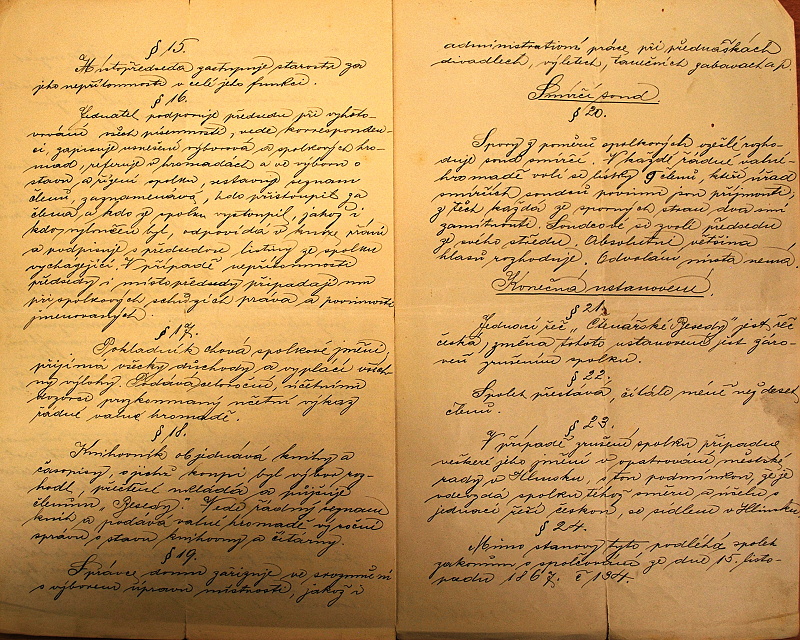 § 15.
Místopředseda zastupuje starostu za
jeho nepřítomnosti v celé jeho funkci.
§ 16.
Jednatel podporuje předsedu při vyhoto-
vování všech písemností, vede korresponden-
ci, zapisuje usnešení výborová a spolkových hro-
mad, referuje v hromadách a ve výboru o
stavu a řízení spolku, sestavuje seznam
členů, zaznamenává, kdo přistoupil za
člena, a kdo z spolku vystoupil, jakož i
kdo vyloučen byl, odpovídá v knize přání
a podpisuje s předsedou listiny ze spolku
vycházející. V případě nepřítomnosti
předsedy i místopředsedy připadají mu
při spolkových schůzích práva a povinnosti
jmenovaných.
§ 17.
Pokladník chová spolkové jmění,
přijímá všecky důchody a vyplácí všech-
ny výlohy. Podává celoroční, účetním
dozorcem prozkoumaný účetní výkaz
řádné valné hromadě.
§ 18.
Knihovník objednává knihy a
časopisy, o jichž koupi byl výbor roz-
hodl, přečtené ukládá a půjčuje
členům „Besedy". Vede řádný seznam
knih a podává valné hromadě výroční
zprávu o stavu knihovny a čítárny.
§ 19.
Správce domu zařizuje ve srozumění
s výborem úpravu místností, jakož i
administrativní práce při přednáškách
divadlech, výletech, tanečních zábavách a p.
Smírčí soud.
§ 20.
Spory z poměru spolkových vzešlé rozho-
duje soud smírčí. V každé řádné valné
hromadě volí se lístky 9 členů, kteří úřad
smírčích soudců povinni jsou přijmouti,
z těch každá ze sporných stran dva smí
zamítnouti. Soudcové si zvolí předsedu
ze svého středu. Absolutní většina
hlasů rozhoduje. Odvolání místa nemá.
Konečná ustanovení.
§ 21.
Jednací řeč „Čtenářské Besedy" jest řeč
česká, změna tohoto ustanovení jest záro-
veň zrušením spolku.
§ 22.
Spolek přestává, čítá-li méně než deset
členů.
§ 23.
V případě zrušení spolku připadne
veškeré jeho jmění v opatrování městské
rady v Hlinsku, s tou podmínkou, že je
odevzdá spolku téhož směru a účelu s
jednací řečí českou, se sídlem v Hlinsku
§ 24.
Mimo stanovy tyto podléhá spolek
zákonům o spolčování ze dne 15. listo-
padu 1867. č 134.